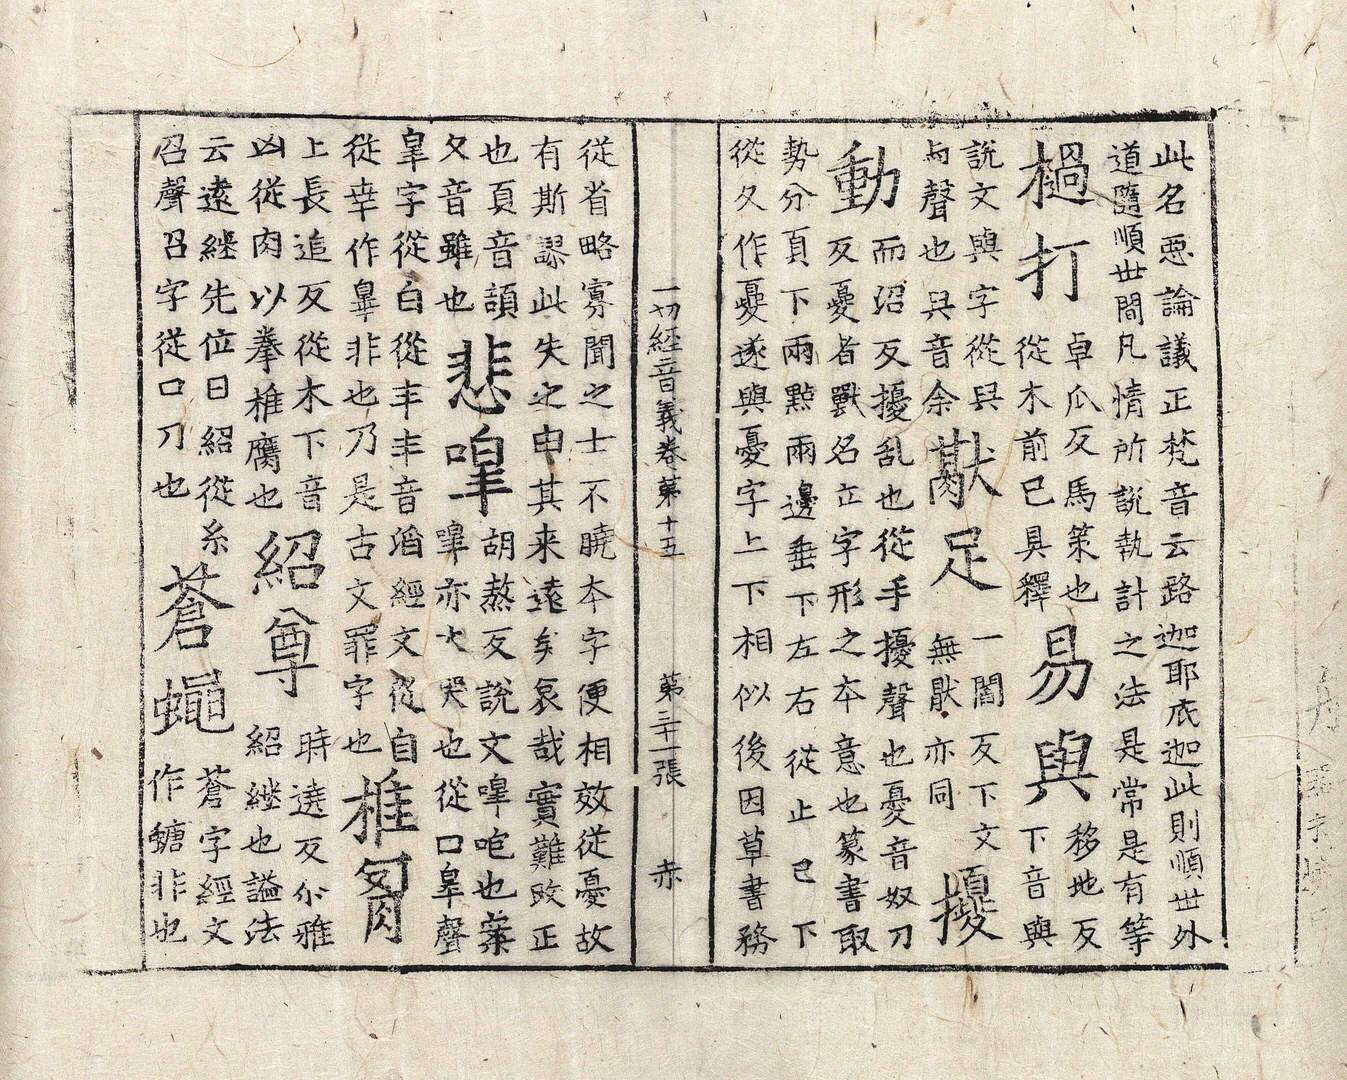 此名惡論議正梵音云路迦耶底迦此則順世外
道隨順世間凡情所說執計之法是常是有等
檛打 卓瓜反馬策也從木前已具釋 易與 移地反下音與
說文與字從舁与聲也舁音余 猒足 一閻反下文無猒亦同 擾
動 而沼反擾亂也從手擾聲也憂音奴刀反憂者獸名立字形之本意也篆書取
勢分頁下兩點兩邊垂下左右從止已下
從夂作憂遂與憂字上下相似後因草書務
一切經音義卷第十五 第三十一張 赤
從省略寡聞之士不曉本字便相效從憂故
有斯謬此失之由其来遠矣哀哉實難改正
也頁音頡夂音雖也 悲嘷 胡熬反說文嘷咆也案嘷亦大哭也從口皐聲
皐字從白從丰丰音滔經文從自
從幸作皋非也乃是古文罪字也 椎胷
上長追反從木下音凶從肉以拳椎膺也 紹尊 時遶反尒雅紹繼也謚法
云遠繼先位曰紹從糸召聲召字從口刀也 蒼蠅 蒼字經文作螗非也